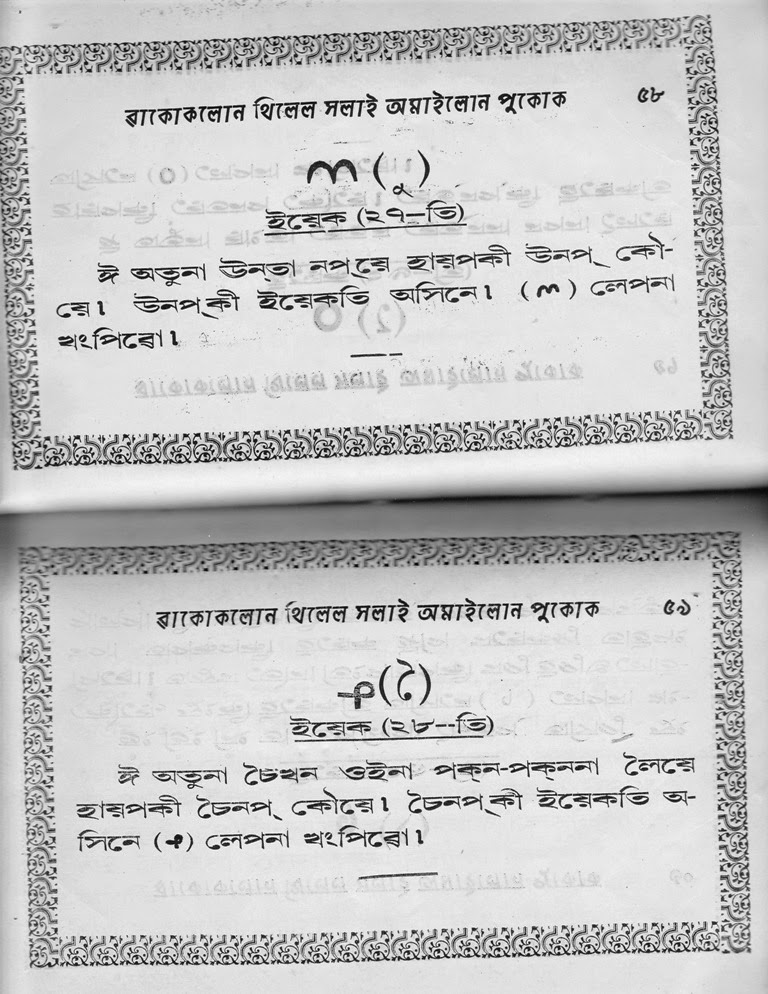 ৱাকোকলোন থিলেল সলাই অমাইলোন পুকোক ৫৮
(ূ)
ইয়েক (২৭-তি)
ঈ অতুনা উনতা নপয়ে হায়পকী উনপ্ কো-
য়ে। উনপ্কী ইয়েকতি অসিনে। ( ) লেপনা
খংপিৱো।
ৱাকোকলোন থিলেল সলাই অমাইলোন পুকোক ৫৯
(ৈ)
ইয়েক (২৮--তি)
ঈ অতুনা চৈখন ওইনা পক্ন-পক্ননা লৈয়ে
হায়পকী চৈনপ্ কোয়ে। চৈনপ্কী ইয়েকতি অ-
সিনে ( ) লেপনা খংপিৱো।